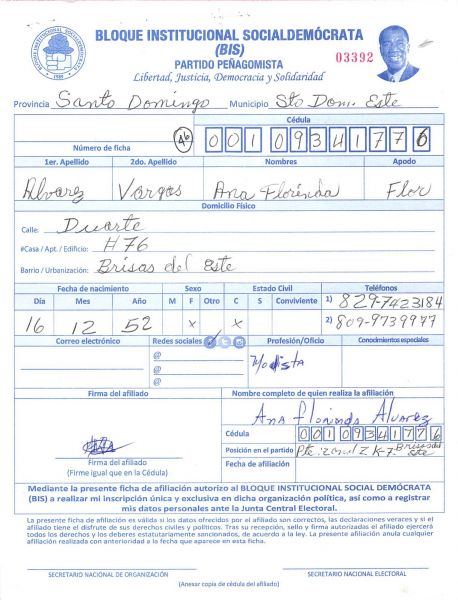 BLOQUE INSTITUCIONAL SOCIALDEMÓCRATA
(BIS)
PARTIDO PEÑAGOMISTA
03392
Libertad, Justicia, Democracia y Solidaridad
Provincia Santo Domingo Municipio Sto Dom. Este
Cédula
Número de ficha 46 0 0 1 0 9 3 4 1 7 7 6
1er. Apellido 2do. Apellido Nombres Apodo
Alvarez Vargas Ana Florinda Flor
Domicilio Físico
Calle: Duarte
#Casa / Apt. / Edificio: #76
Barrio / Urbanización: Brisas del Este
Fecha de nacimiento Sexo Estado Civil Teléfonos
Día Mes Año M F Otro C S Conviviente 1) 829-7423184
16 12 52 x x 2) 809-9739977
Correo electrónico Redes sociales Profesión/Oficio Conocimientos especiales
@
@
@
Modista
Firma del afiliado Nombre completo de quien realiza la afiliación
Ana Florinda Alvarez
Cédula 0 0 1 0 9 3 4 1 7 7 6
Posición en el partido Pte. zonal Z K-7 Brisas del Este
Firma del afiliado
(Firme igual que en la Cédula)
Fecha de afiliación
Mediante la presente ficha de afiliación autorizo al BLOQUE INSTITUCIONAL SOCIAL DEMÓCRATA
(BIS) a realizar mi inscripción única y exclusiva en dicha organización política, así como a registrar
mis datos personales ante la Junta Central Electoral.
La presente ficha de afiliación es válida si los datos ofrecidos por el afiliado son correctos, las declaraciones veraces y si el
afiliado tiene el disfrute de sus derechos civiles y políticos. Tras su recepción, sello y firma autorizadas el afiliado ejercerá
todos los derechos y los deberes estatutariamente sancionados, de acuerdo a la ley. La presente afiliación anula cualquier
afiliación realizada con anterioridad a la fecha que aparece en esta ficha.
SECRETARIO NACIONAL DE ORGANIZACIÓN SECRETARIO NACIONAL ELECTORAL
(Anexar copia de cédula del afiliado)